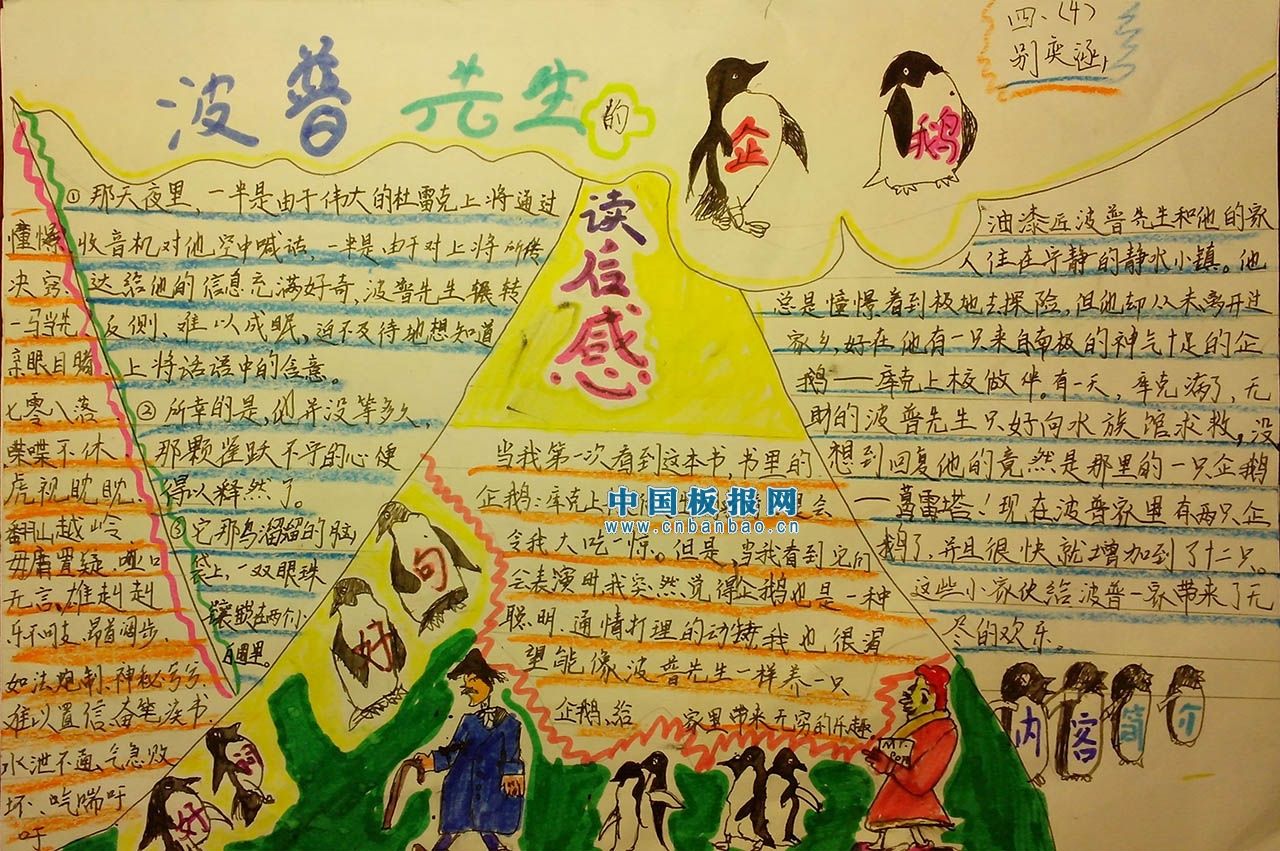 四、(4)
波普先生的企鹅
读后感
憧憬
决窍
一马当先
亲眼目睹
七零八落
喋喋不休
虎视眈眈
翻山越岭
毋庸置疑、哑口
无言、雄赳赳
乐不可支、昂首阔步、
如法炮制、神秘兮兮
难以置信、奋笔疾书、
水泄不通、气急败
坏、气喘吁
吁
好词
①那天夜里,一半是由于伟大的杜雷克上将通过
收音机对他空中喊话,一半是由于对上将所传
达给他的信息充满好奇,波普先生辗转
反侧、难以成眠,迫不及待地想知道
上将话语中的含意。
②所幸的是,他并没等多久,
那颗雀跃不宁的心便
得以释然了。
③它那乌溜溜的脑
袋上,一双眼珠
镶嵌在两个小
白圈里。
好句
当我第一次看到这本书,书里的
企鹅:库克上
令我大吃一惊。但是,当我看到它们
会表演时,我突然觉得企鹅也是一种
聪明、通情打理的动物,我也很渴
望能像波普先生一样养一只
企鹅,给家里带来无穷的乐趣
油漆匠波普先生和他的家
人住在宁静的静水小镇。他
总是憧憬着到极地去探险,但他却从未离开过
家乡,好在他有一只来自南极的神气十足的企
鹅——库克上校做伴。有一天,库克病了,无
助的波普先生只好向水族馆求救,没
想到回复他的竟然是那里的一只企鹅
——葛雷塔!现在波普家里有两只企
鹅了,并且很快就增加到了十二只。
这些小家伙给波普一家带来了无
尽的欢乐。
内容简介
中国板报网
www.cnbanbao.cn